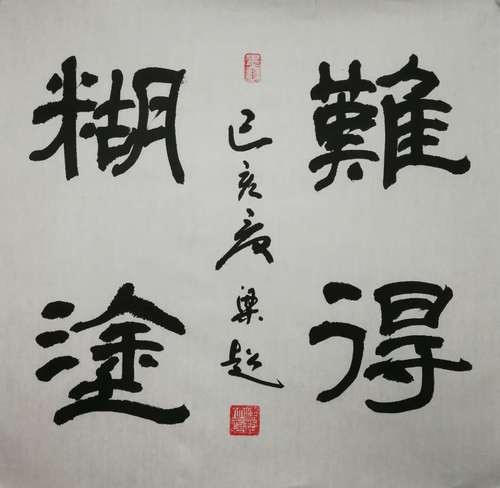 難得
糊塗
己亥夏梁超